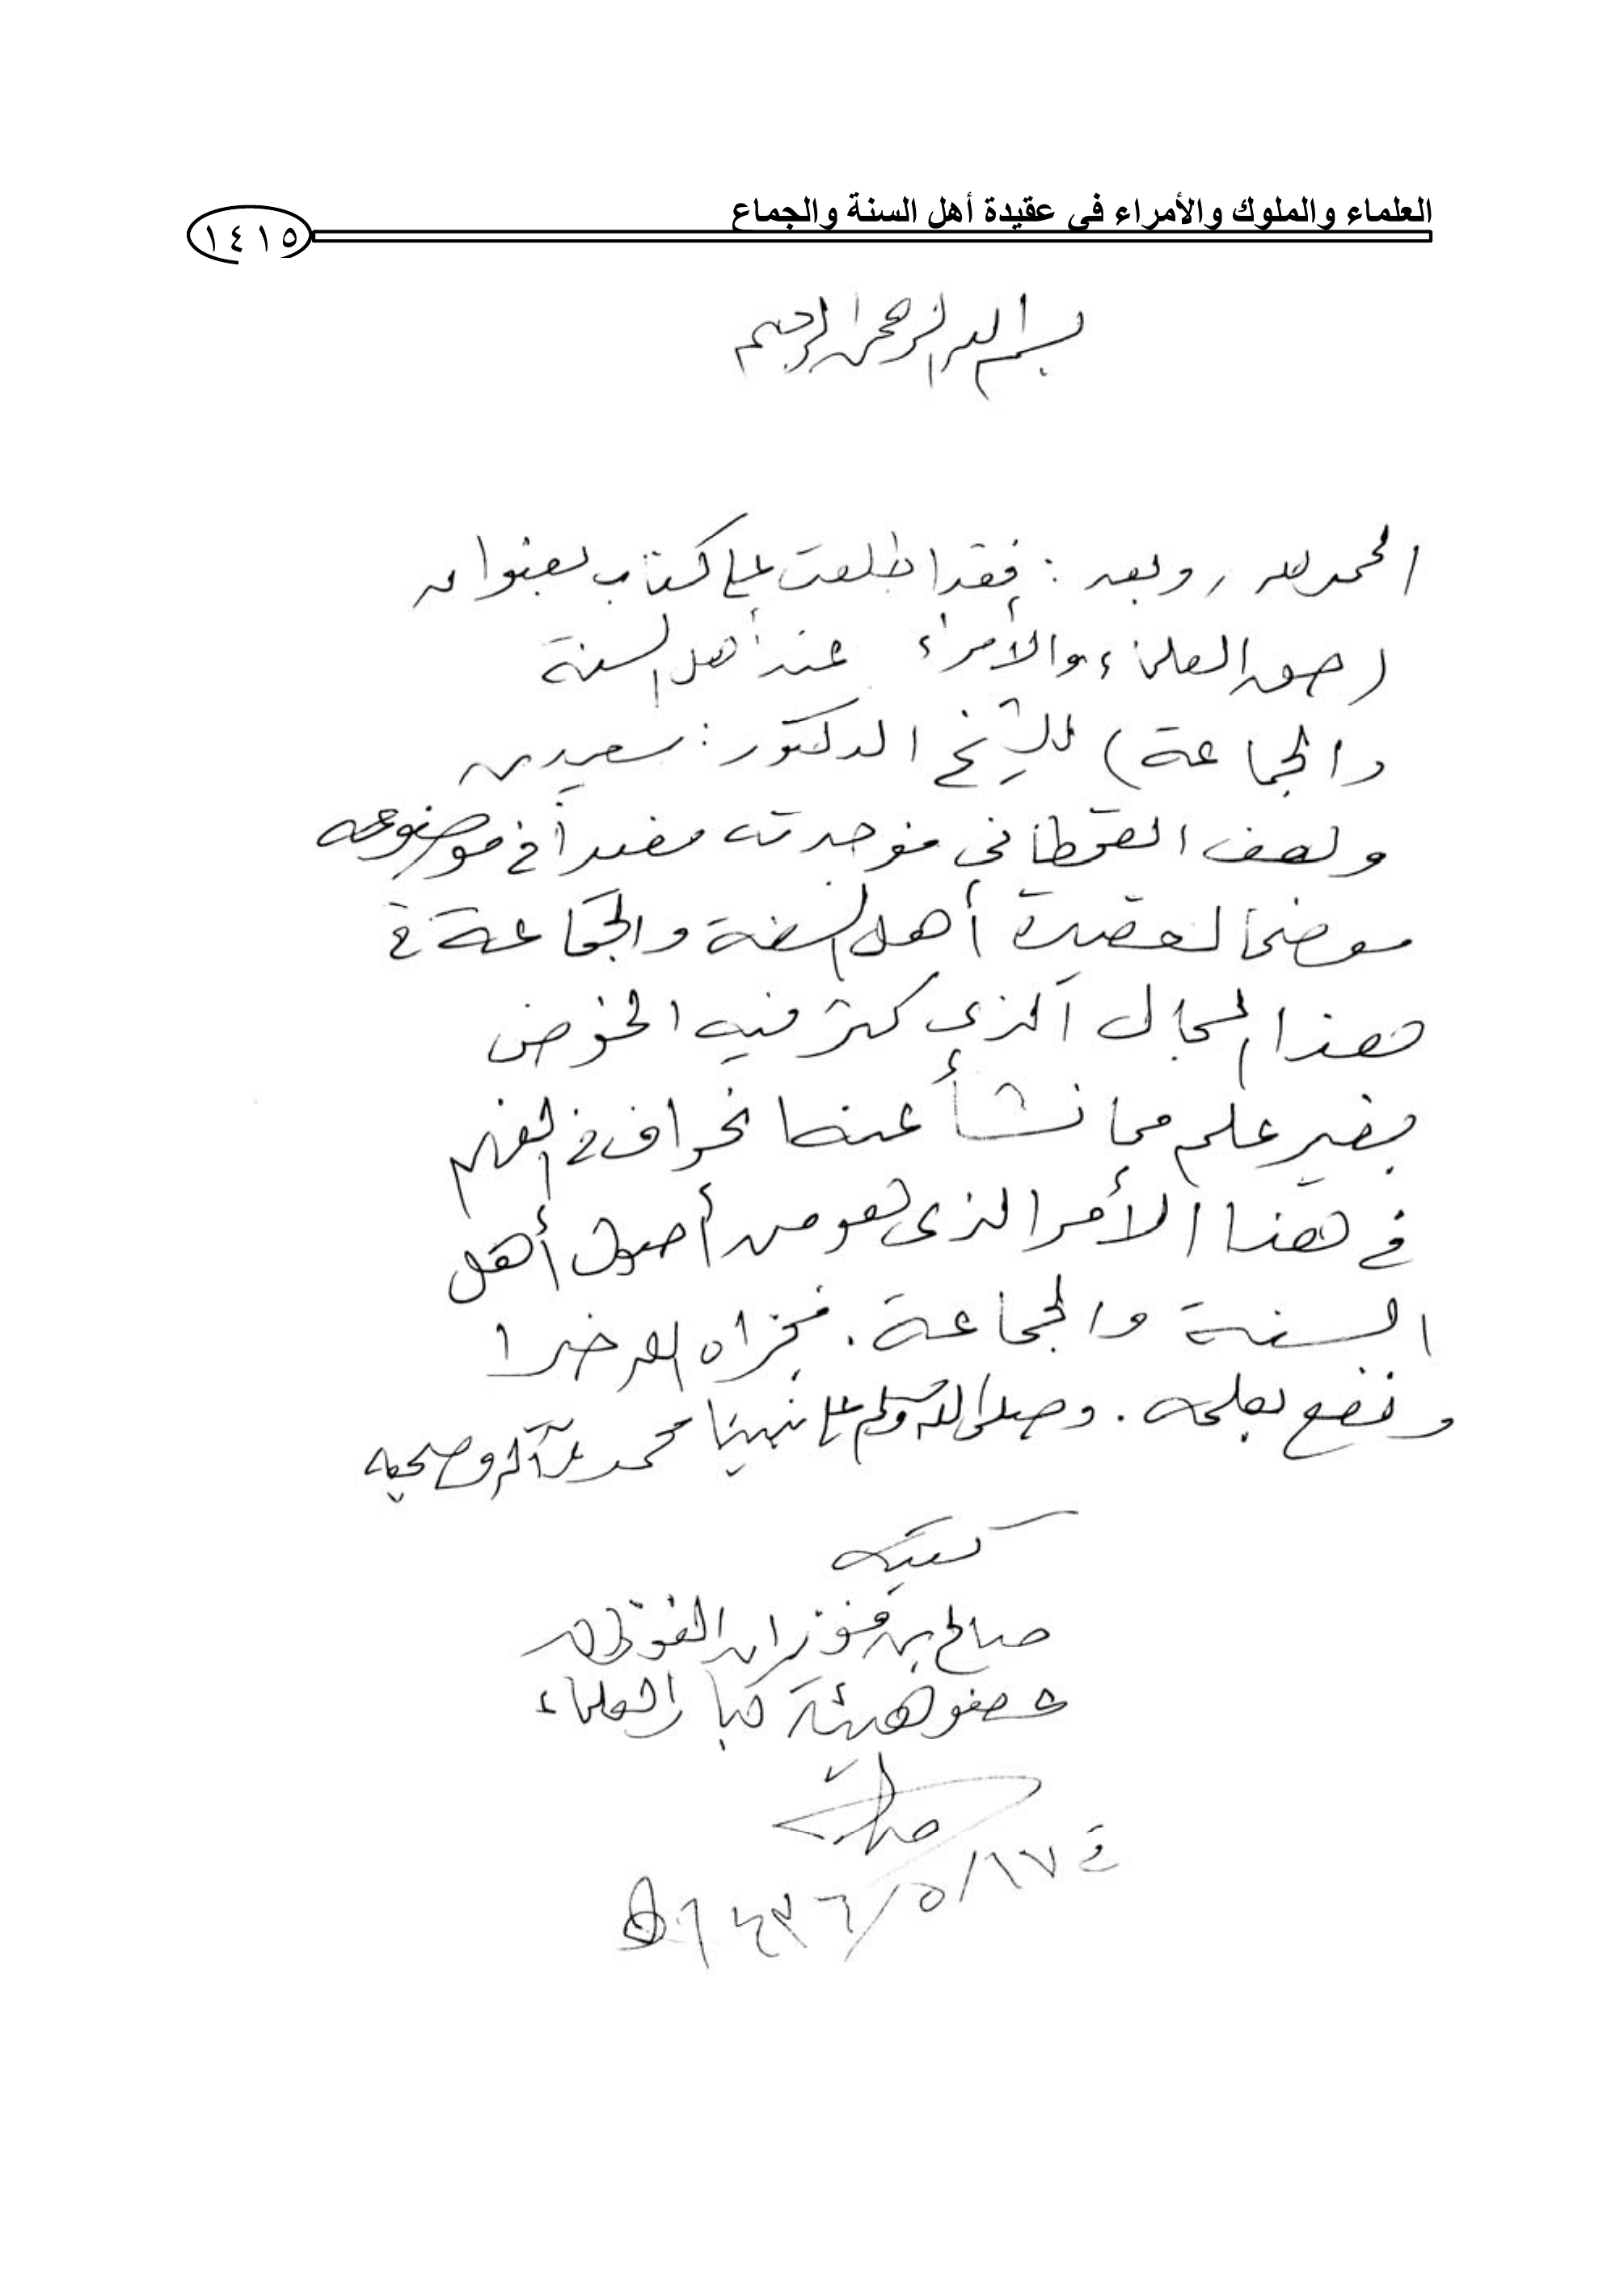 العلماء والملوك والأمراء في عقيدة أهل السنة والجماع
١٤١٥
بسم الله الرحمن الرحيم
الحمد لله, وبعد: فقد اطلعت على كتاب بعنوان
(حق العلماء والأمراء عند أهل السنة
والجماعة) للشيخ الدكتور: سعيد بن
وهف القحطاني فوجدته مفيداً في موضوعه
موضحا لعقيدة أهل السنة والجماعة في
هذا المجال الذي كثر فيه الخوض
بغير علم مما نشأ عنه انحراف في الفهم
في هذا الأمر الذي هو من أصول أهل
السنة والجماعة. فجزاه الله خيرا
ونفع بعلمه. وصلى الله وسلم على نبينا محمد وآله وصحبه
كتبه
صالح بن فوزان الفوزان
عضو هيئة كبار العلماء
في ١٧/٥/١٤٣٦هـ